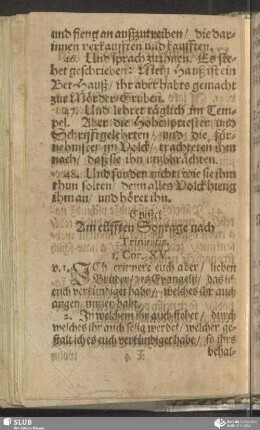 und fieng an außzutreiben / die dar-
innen verkaufften und kaufften.
46. Und sprach zu ihnen. Es ste-
het geschrieben: Mein Hauß ist ein
Bet-Hauß / ihr aber habts gemacht
zur Mörder-Gruben.
47. Und lehret täglich im Tem-
pel. Aber die Hohenpriester und
Schrifftgelehrten / und die für-
nehmsten im Volck / trachteten ihm
nach / daß sie ihn umbbrächten.
48. Und funden nicht / wie sie ihm
thun solten / denn alles Volck hieng
ihm an / und höret ihn.
Epistel
Am eilfften Sontage nach
Trinitatis.
1. Cor. XV.
v. 1. ICh erinnere euch aber / lieben
Brüder / des Evangelii / das ich
euch verkündiget habe / welches ihr auch
angenommen habt.
2. In welchem ihr auch stehet / durch
welches ihr auch selig werdet / welcher ge-
stalt ich es euch verkündiget habe / so ihrs
behal-
SLUB